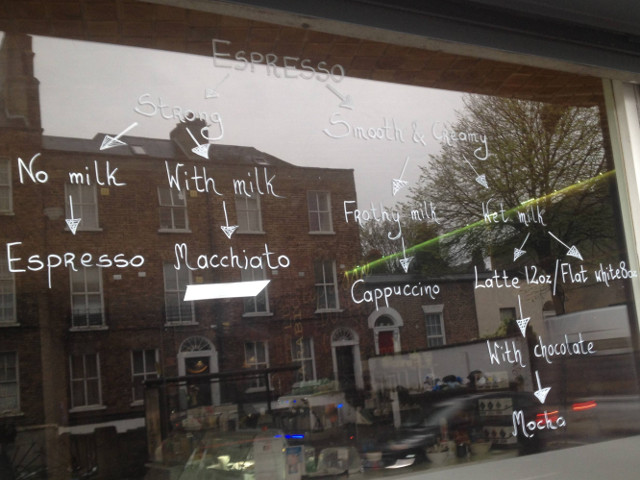 ESPRESSO
Strong
Smooth & Creamy
No milk
With milk
Frothy milk
Wet milk
Espresso
Macchiato
Cappuccino
Latte 12oz/Flat white 8oz
With chocolate
Mocha